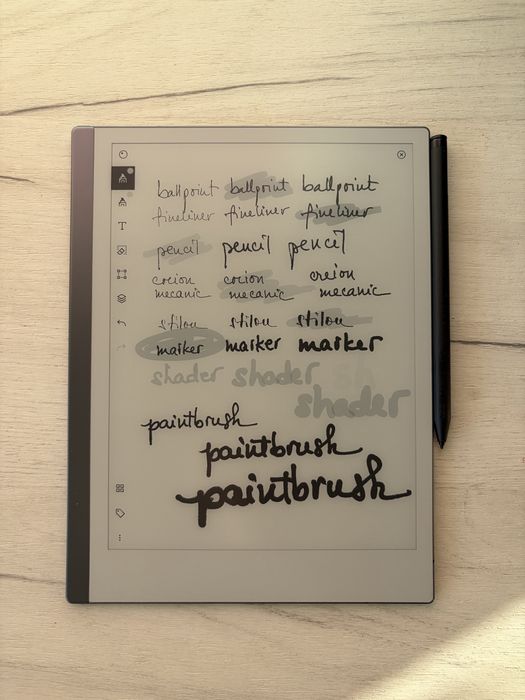 ballpoint ballpoint ballpoint
fineliner fineliner fineliner
pencil pencil pencil
creion creion creion
mecanic mecanic mecanic
stilou stilou stilou
marker marker marker
shader shader
shader
paintbrush
paintbrush
paintbrush